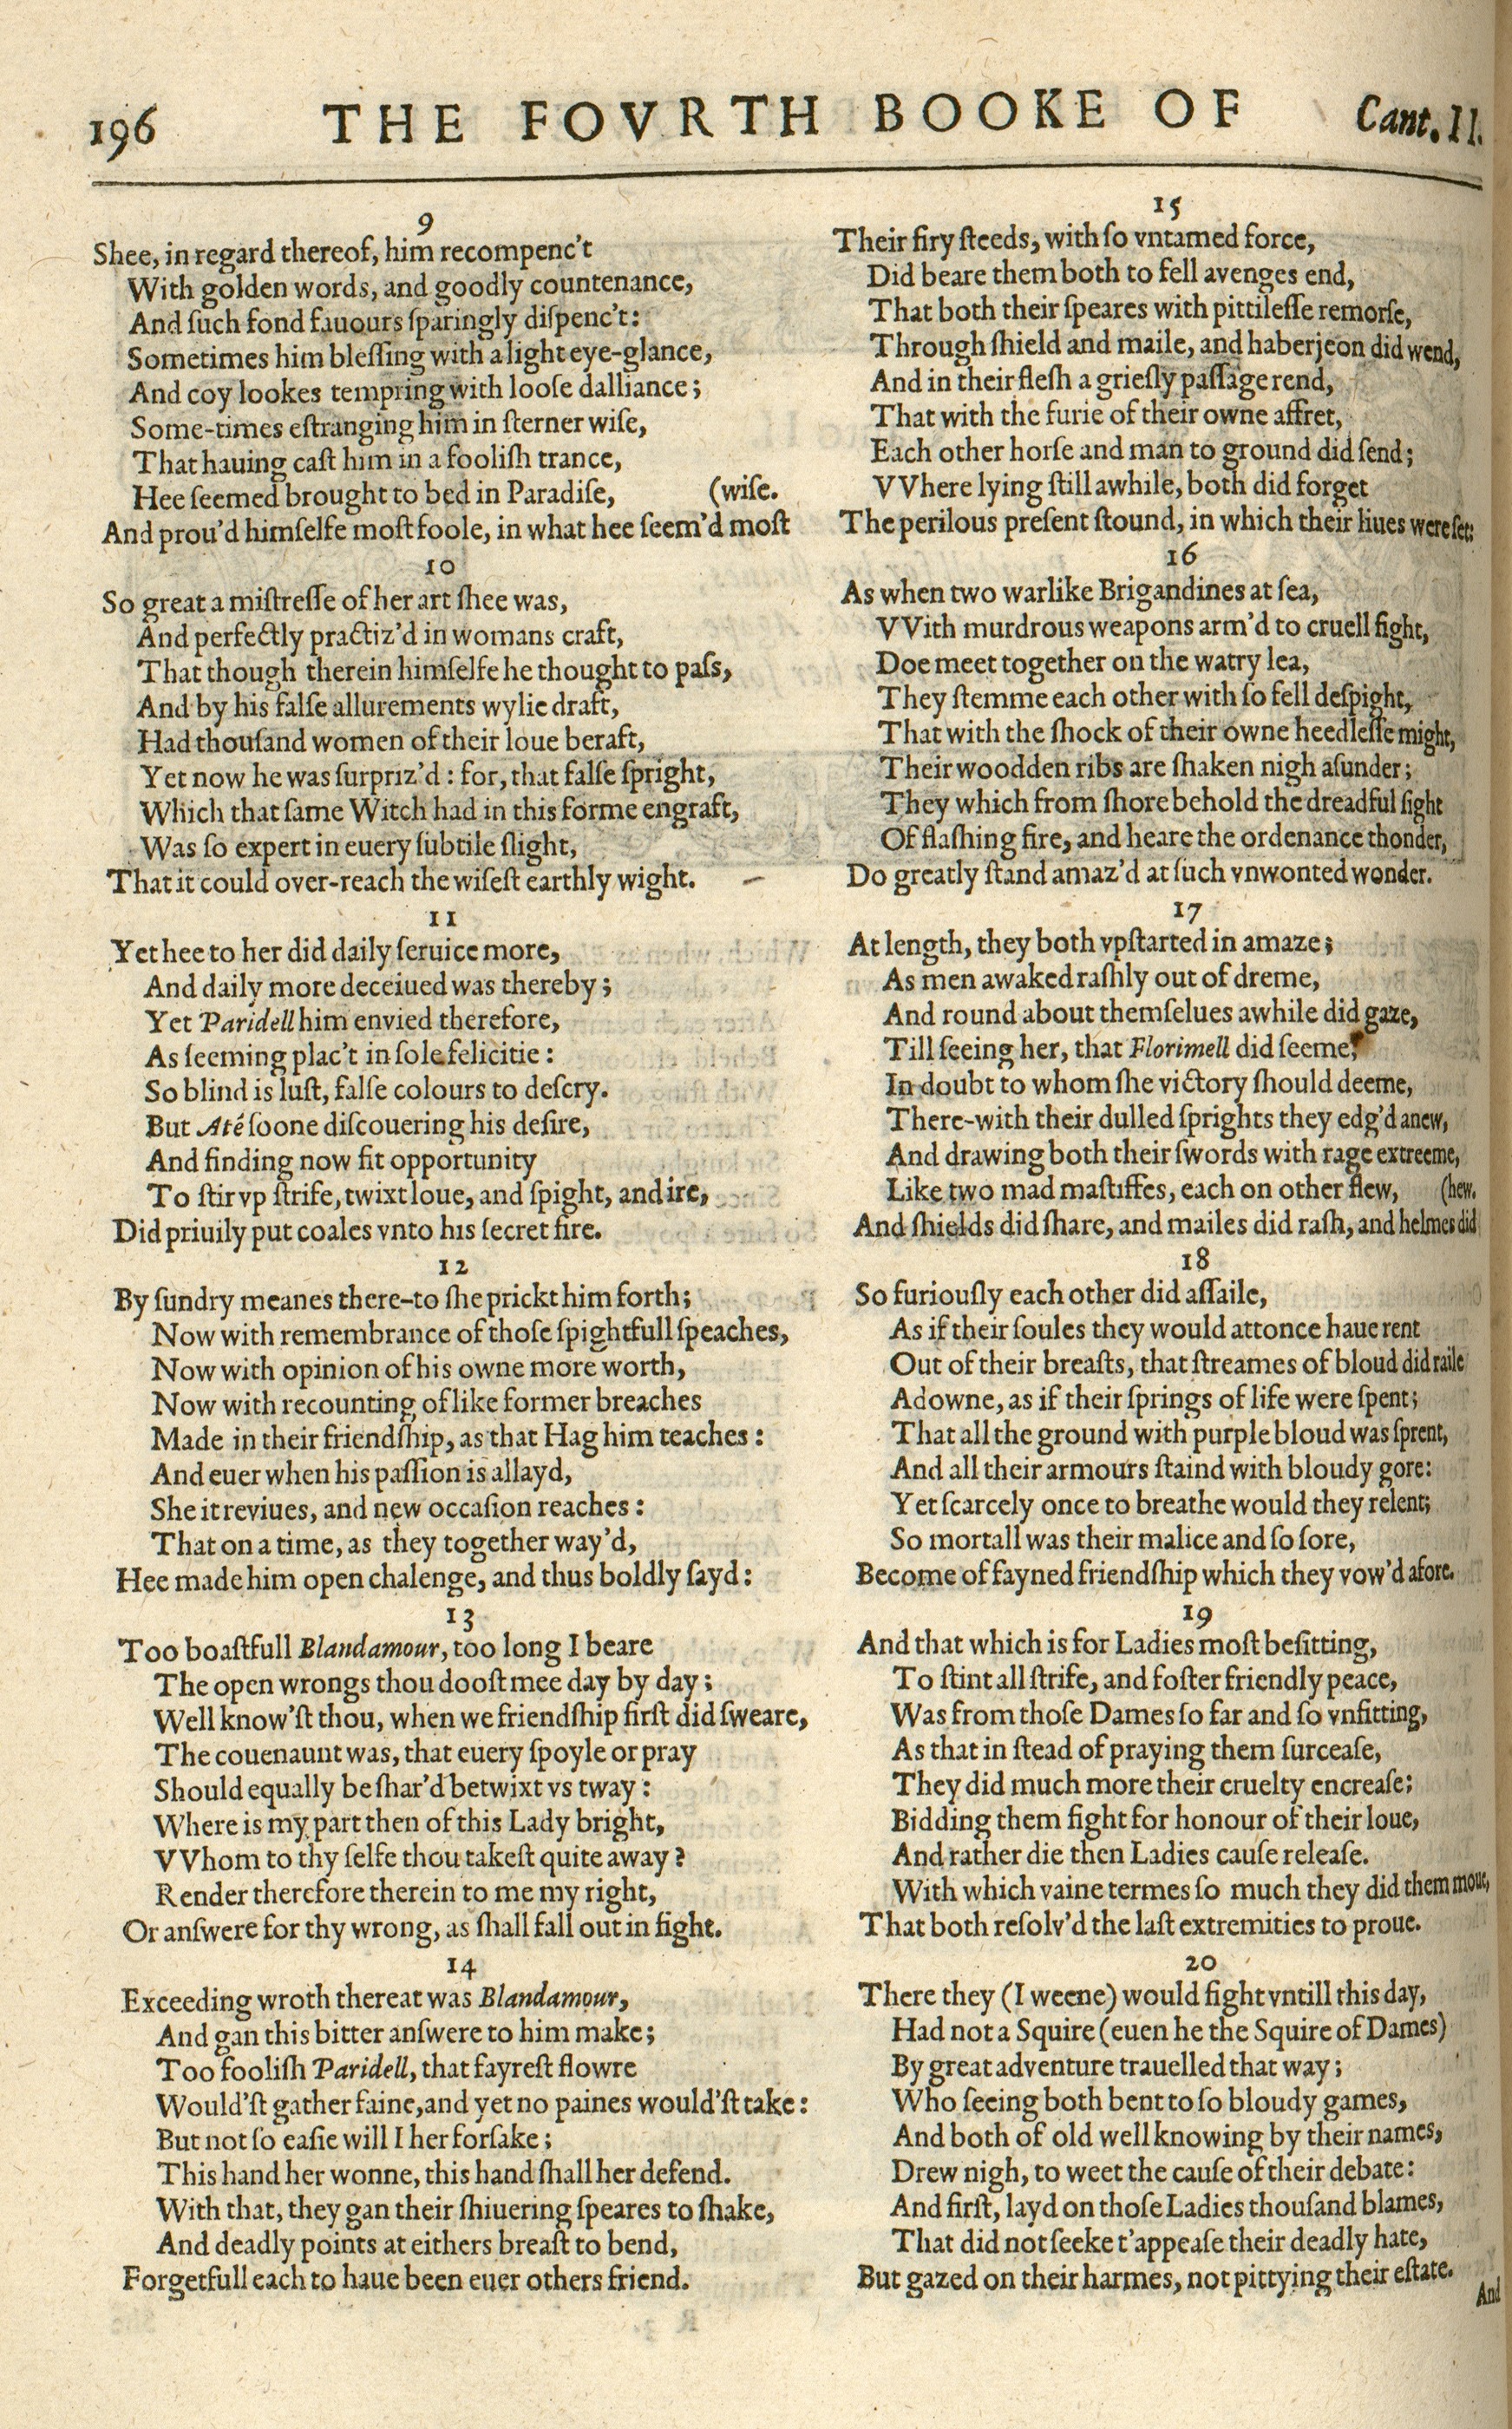 196 THE FOVRTH BOOKE OF Cant. II.
9
Shee, in regard thereof, him recompenc't
With golden words, and goodly countenance,
And ſuch fond fauours ſparingly diſpenc't:
Sometimes him bleſſing with a light eye-glance,
And coy lookes tempring with looſe dalliance;
Some-times eſtranging him in ſterner wiſe,
That hauing caſt him in a fooliſh trance,
Hee ſeemed brought to bed in Paradiſe, (wiſe.
And prou'd himſelfe moſt foole, in what hee ſeem'd moſt
10
So great a miſtreſſe of her art ſhee was,
And perfectly practiz'd in womans craft,
That though therein himſelfe he thought to paſs,
And by his falſe allurements wylie draft,
Had thouſand women of their loue beraft,
Yet now he was ſurpriz'd: for, that falſe ſpright,
Which that ſame Witch had in this forme engraft,
Was ſo expert in euery ſubtile ſlight,
That it could over-reach the wiſeſt earthly wight.
11
Yet hee to her did daily ſeruice more,
And daily more deceiued was thereby;
Yet Paridell him envied therefore,
As ſeeming plac't in ſole felicitie:
So blind is luſt, falſe colours to deſcry.
But Até ſoone diſcouering his deſire,
And finding now fit opportunity
To ſtir vp ſtrife, twixt loue, and ſpight, and ire,
Did priuily put coales vnto his ſecret fire.
12
By ſundry meanes there-to ſhe prickt him forth;
Now with remembrance of thoſe ſpightfull ſpeaches,
Now with opinion of his owne more worth,
Now with recounting of like former breaches
Made in their friendſhip, as that Hag him teaches:
And euer when his paſſion is allayd,
She it reviues, and new occaſion reaches:
That on a time, as they together way'd,
Hee made him open chalenge, and thus boldly ſayd:
13
Too boaſtfull Blandamour, too long I beare
The open wrongs thou dooſt mee day by day;
Well know'ſt thou, when we friendſhip firſt did ſweare,
The couenaunt was, that euery ſpoyle or pray
Should equally be ſhar'd betwixt vs tway:
Where is my part then of this Lady bright,
VVhom to thy ſelfe thou takeſt quite away?
Render therefore therein to me my right,
Or anſwere for thy wrong, as ſhall fall out in fight.
14
Exceeding wroth thereat was Blandamour,
And gan this bitter anſwere to him make;
Too fooliſh Paridell, that fayreſt flowre
Would'ſt gather faine, and yet no paines would'ſt take:
But not ſo eaſie will I her forſake;
This hand her wonne, this hand ſhall her defend.
With that, they gan their ſhiuering ſpeares to ſhake,
And deadly points at eithers breaſt to bend,
Forgetfull each to haue been euer others friend.
15
Their firy ſteeds, with ſo vntamed force,
Did beare them both to fell avenges end,
That both their ſpeares with pittileſſe remorſe,
Through ſhield and maile, and haberjeon did wend,
And in their fleſh a grieſly paſſage rend,
That with the furie of their owne affret,
Each other horſe and man to ground did ſend;
VVhere lying ſtill awhile, both did forget
The perilous preſent ſtound, in which their liues were ſet:
16
As when two warlike Brigandines at ſea,
VVith murdrous weapons arm'd to cruell fight,
Doe meet together on the watry lea,
They ſtemme each other with ſo fell deſpight,
That with the ſhock of their owne heedleſſe might,
Their woodden ribs are ſhaken nigh aſunder;
They which from ſhore behold the dreadful ſight
Of flaſhing fire, and heare the ordenance thonder,
Do greatly ſtand amaz'd at ſuch vnwonted wonder.
17
At length, they both vpſtarted in amaze;
As men awaked raſhly out of dreme,
And round about themſelues awhile did gaze,
Till ſeeing her, that Florimell did ſeeme,
In doubt to whom ſhe victory ſhould deeme,
There-with their dulled ſprights they edg'd anew,
And drawing both their ſwords with rage extreeme,
Like two mad maſtiffes, each on other flew, (hew.
And ſhields did ſhare, and mailes did raſh, and helmes did
18
So furiouſly each other did aſſaile,
As if their ſoules they would attonce haue rent
Out of their breaſts, that ſtreames of bloud did raile
Adowne, as if their ſprings of life were ſpent;
That all the ground with purple bloud was ſprent,
And all their armours ſtaind with bloudy gore:
Yet ſcarcely once to breathe would they relent;
So mortall was their malice and ſo ſore,
Become of fayned friendſhip which they vow'd afore.
19
And that which is for Ladies moſt beſitting,
To ſtint all ſtrife, and foſter friendly peace,
Was from thoſe Dames ſo far and ſo vnfitting,
As that in ſtead of praying them ſurceaſe,
They did much more their cruelty encreaſe;
Bidding them fight for honour of their loue,
And rather die then Ladies cauſe releaſe.
With which vaine termes ſo much they did them moue,
That both reſolv'd the laſt extremities to proue.
20
There they (I weene) would fight vntill this day,
Had not a Squire (euen he the Squire of Dames)
By great adventure trauelled that way;
Who ſeeing both bent to ſo bloudy games,
And both of old well knowing by their names,
Drew nigh, to weet the cauſe of their debate:
And firſt, layd on thoſe Ladies thouſand blames,
That did not ſeeke t'appeaſe their deadly hate,
But gazed on their harmes, not pittying their eſtate.
And